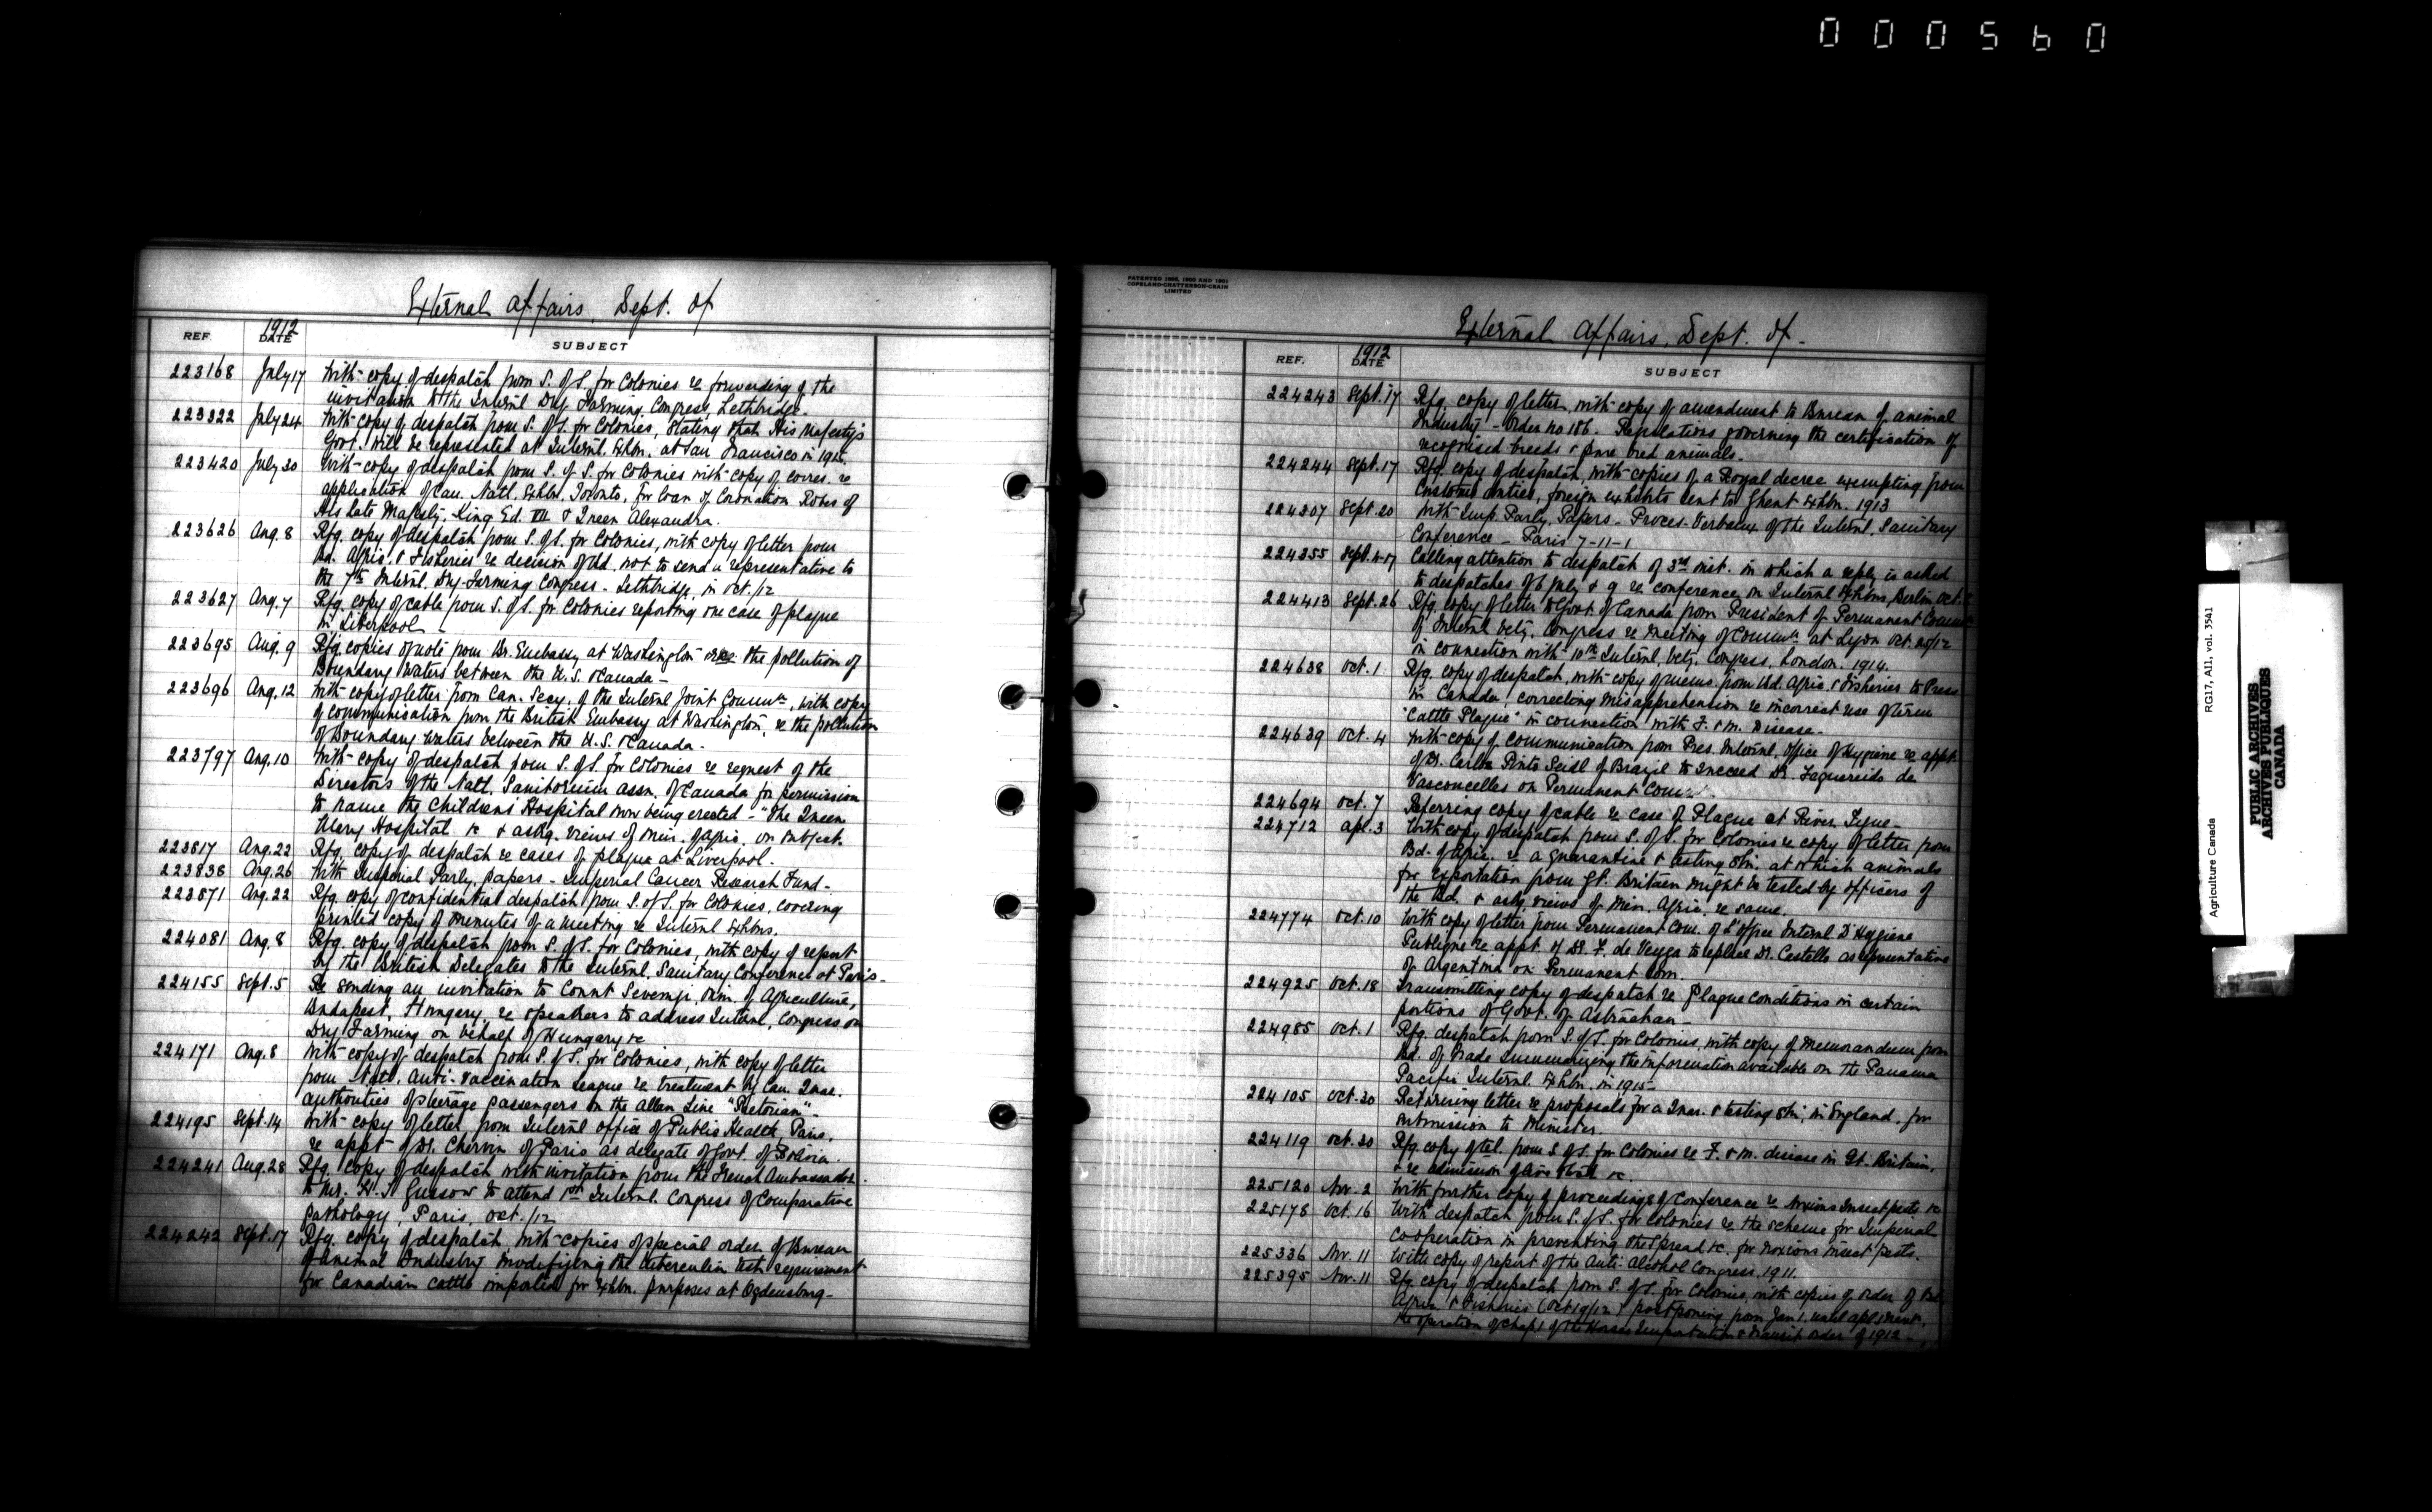 000560
External Affairs, Dept. of
REF. 1912 DATE SUBJECT
223168 July 17 With copy of despatch from S. of S. for Colonies re forwarding of the
invitation to the Internl Dry Farming Congress, Lethbridge.
223322 July 24 With copy of despatch from S. of S. for Colonies, stating that His Majesty's
Govt. will be represented at Internl. Exhbn. at San Francisco in 1915.
223420 July 30 With copy of despatch from S. of S. for Colonies with copy of corres. re
application of Can. Natl. Exhbn. Toronto, for loan of Coronation Robes of
His late Majesty, King Ed. VII & Queen Alexandra.
223626 Aug. 8 Rfg. copy of despatch from S. of S. for Colonies, with copy of letter from
Bd. Agric. & Fisheries re decision of Bd. not to send a representative to
the 7th Internl. Dry-Farming Congress - Lethbridge, in Oct./12
223627 Aug. 7 Rfg. copy of cable from S. of S. for Colonies reporting one case of plague
in Liverpool -
223695 Aug. 9 Rfg. copies of note from Br. Embassy at Washington re the pollution of
Boundary Waters between the U.S. & Canada -
223696 Aug. 12 With copy of letter from Can. Secy. of the Internl Joint Commn, with copy
of communication from the British Embassy at Washington, re the pollution
of Boundary Waters between the U.S. & Canada -
223797 Aug. 10 With copy of despatch from S. of S. for Colonies re request of the
Directors of the Natl. Sanitorium Assn. of Canada for permission
to name the Childrens Hospital now being erected - "The Queen
Mary Hospital &c & askg. views of Min. of Agric. on subject.
223817 Aug. 22 Rfg. copy of despatch re cases of plague at Liverpool.
223838 Aug. 26 With Imperial Parly. papers - Imperial Cancer Research Fund -
223871 Aug. 22 Rfg. copy of confidential despatch from S. of S. for Colonies, covering
printed copy of minutes of a meeting re Internl Exhbns.
224081 Aug. 8 Rfg. copy of despatch from S. of S. for Colonies, with copy of report
by the British Delegates to the Internl. Sanitary Conference at Paris -
224155 Sept. 5 Re sending an invitation to Count Min. of Agriculture,
Budapest, Hungary, re speakers to address Internl. Congress on
Dry Farming on behalf of Hungary &c
224171 Aug. 8 With copy of despatch from S. of S. for Colonies, with copy of letter
from Natl. Anti-Vaccination League re treatment by Can. Quar.
authorities of steerage passengers on the Allan Line "Pretorian" -
224195 Sept. 14 With copy of letter from Internl Office of Public Health, Paris,
re appt of Dr. Chervin of Paris as delegate of Govt. of Bolivia.
224241 Aug. 28 Rfg. copy of despatch with invitation from the French Ambassador
to Mr. H. T. Gussow to attend 1st Internl. Congress of Comparative
Pathology, Paris, Oct./12
224242 Sept. 17 Rfg. copy of despatch with copies of special order of Bureau
of Animal Industry modifying the tuberculin test requirement
for Canadian cattle imported for Exhbn. purposes at Ogdensburg -
PATENTED 1896, 1900 AND 1901
COPELAND-CHATTERSON-CRAIN
LIMITED
External Affairs, Dept. of -
REF. 1912 DATE SUBJECT
224243 Sept. 17 Rfg. copy of letter, with copy of amendment to Bureau of Animal
Industry - Order no 186. Regulations governing the certification of
recognised breeds & pure bred animals.
224244 Sept. 17 Rfg. copy of despatch, with copies of a Royal decree exempting from
Customs duties, foreign exhibits sent to Ghent Exhbn. 1913
224307 Sept. 20 With Imp. Parly. Papers - Proces-Verbaux of the Internl. Sanitary
Conference - Paris 7-11-1
224355 Sept. Calling attention to despatch of 3rd inst. in which a reply is asked
to despatches of 6 July & 9 re conference on Internl Exhbns, Berlin Oct.
224413 Sept. 26 Rfg. copy of letter to Govt. of Canada from President of Permanent
of Internl Vety. Congress re meeting of Commn at Lyon Oct. 29/12
in connection with 10th Internl. Vety. Congress, London. 1914.
224638 Oct. 1 Rfg. copy of despatch, with copy of memo from Bd. Agric. & Fisheries to Press
in Canada, correcting misapprehension re incorrect use of term
"Cattle Plague" in connection with F. & M. Disease -
224639 Oct. 4 With copy of communication from Pres. Internl. Office of Hygiene re appt
of Dr. Carlos Pinto Seidl of Brazil to succeed Dr. Figuereido de
Vasconcelles on Permanent
224694 Oct. 7 Referring copy of cable re case of Plague at River Tyne -
224712 Apl. 3 With copy of despatch from S. of S. for Colonies re copy of letter from
Bd. of Agric. re a quarantine & testing stn. at which animals
for exportation from Gt. Britain might be tested by officers of
the Bd. & askg views of Min. Agric. re same.
224774 Oct. 10 With copy of letter from Permanent Com. of L'office Internl D'Hygiene
Publique re appt. of Dr. F. de Veyga to replace Dr. Castello as representative
of Argentina on Permanent Com.
224925 Oct. 18 Transmitting copy of despatch re Plague conditions in certain
portions of Govt. of Astrachan -
224985 Oct. 1 Rfg. despatch from S. of S. for Colonies, with copy of Memorandum from
Bd. of Trade summarizing the information available on the Panama
Pacific Internl. Exhbn. in 1915 -
224105 Oct. 30 Returning letter re proposals for a Quar. & testing stn. in England, for
submission to Minister.
224119 Oct. 30 Rfg. copy of tel. from S of S. for Colonies re F. & M. disease in Gt. Britain,
& re admission of live stock &c.
225120 Nov. 2 With further copy of proceedings of Conference re Noxious Insect pests &c
225178 Oct. 16 With despatch from S. of S. for Colonies re the scheme for Imperial
co-operation in preventing the spread &c. for noxious insect pests.
225336 Nov. 11 With copy of report of the Anti-Alcohol Congress. 1911.
225395 Nov. 11 Rfg. copy of despatch from S. of S. for Colonies, with copies of order of Bd.
Agric. & Fisheries (Oct 19/12) postponing from Jan 1. until Apl. 1 next,
the operation of Chap 1 of the Horses Importation & Transit Order of 1912 -
Agriculture Canada RG17, A11, vol. 3541
PUBLIC ARCHIVES
ARCHIVES PUBLIQUES
CANADA